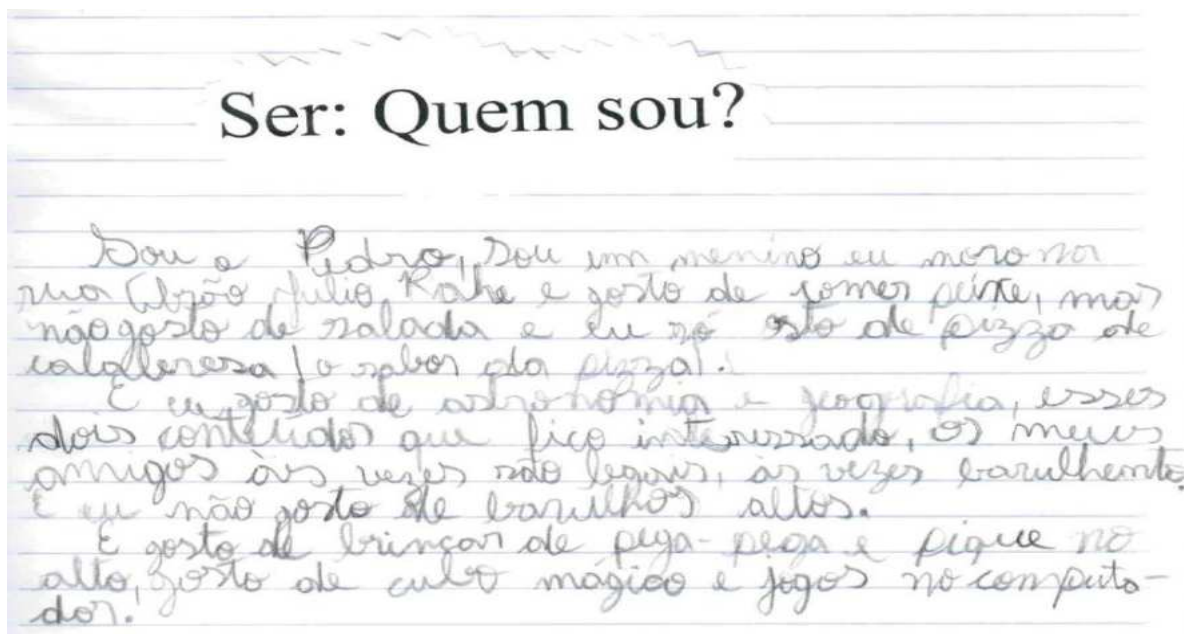 Ser: Quem sou?
Sou o Pedro, sou um menino eu moro na
rua Abrão Julio Rahe e gosto de comer peixe, mas
não gosto de salada e eu só osto de pizza de
calabresa (o sabor da pizza).
E eu gosto de astronomia e geografia, esses
dois conteúdos que fico interessado, os meus
amigos às vezes são legais, às vezes barulhento.
E eu não gosto de barulhos altos.
E gosto de brincar de pega-pega e pique no
alto, gosto de cubo mágico e jogos no computa-
dor.